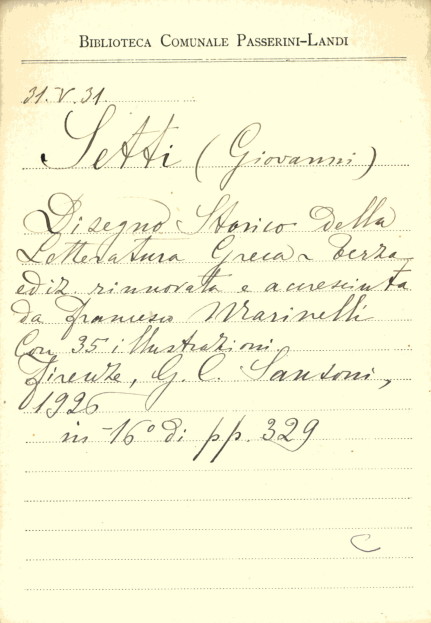 BIBLIOTECA COMUNALE PASSERINI-LANDI
31.V.31.
Setti (Giovanni)
Disegno Storico della
Letteratura Greca - terza
ediz. rinnovata e accresciuta
da Francesco Marinelli
Con 35 illustrazioni.
Firenze, G. C. Sansoni,
1926
in-16° di pp. 329
C